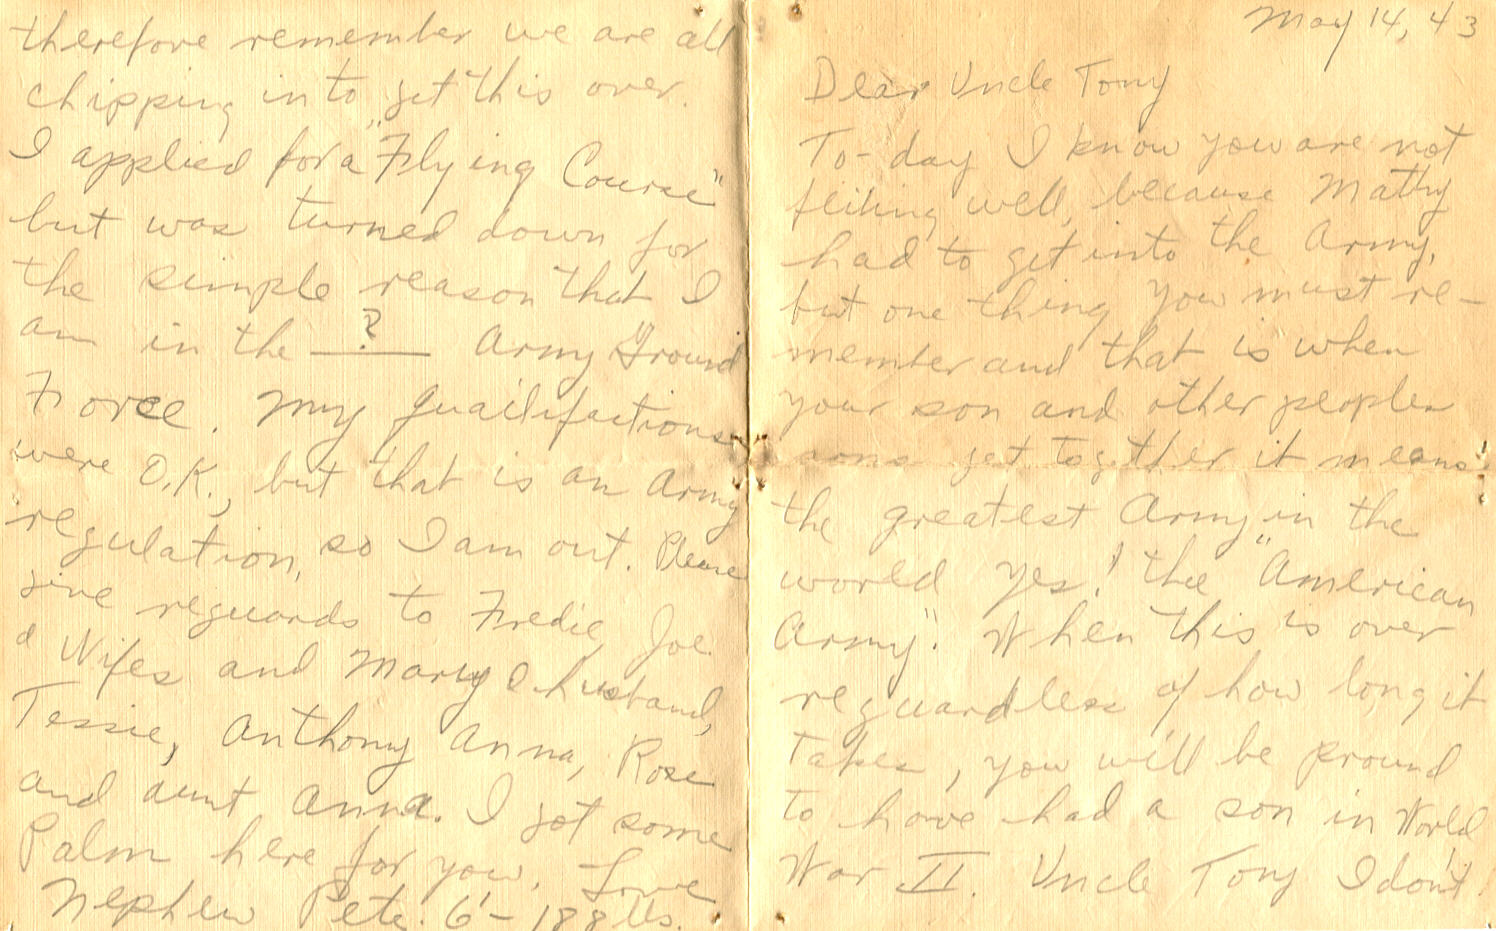 May 14, 43
Dear Uncle Tony
To-day I know you are not
feiling well, because Matty
had to get into the Army,
but one thing you must re-
member and that is when
your son and other peoples
sons get together it means
the greatest Army in the
world yes! the "American
Army". When this is over
reguardless of how long it
takes, you will be pround
to have had a son in World
War II. Uncle Tony I don't
therefore remember we are all
chipping in to get this over.
I applied for a "Flying Course"
but was turned down for
the simple reason that I
am in the ? Army Ground
Force. My quailifactions
were O.K., but that is an Army
regulation, so I am out. Please
give reguards to Fredie, Joe
& Wifes and Mary & husband,
Tessie, Anthony Anna, Rose
and aunt Anna. I got some
Palm here for you. Love
Nephew Pete. 6'- 188 lbs.